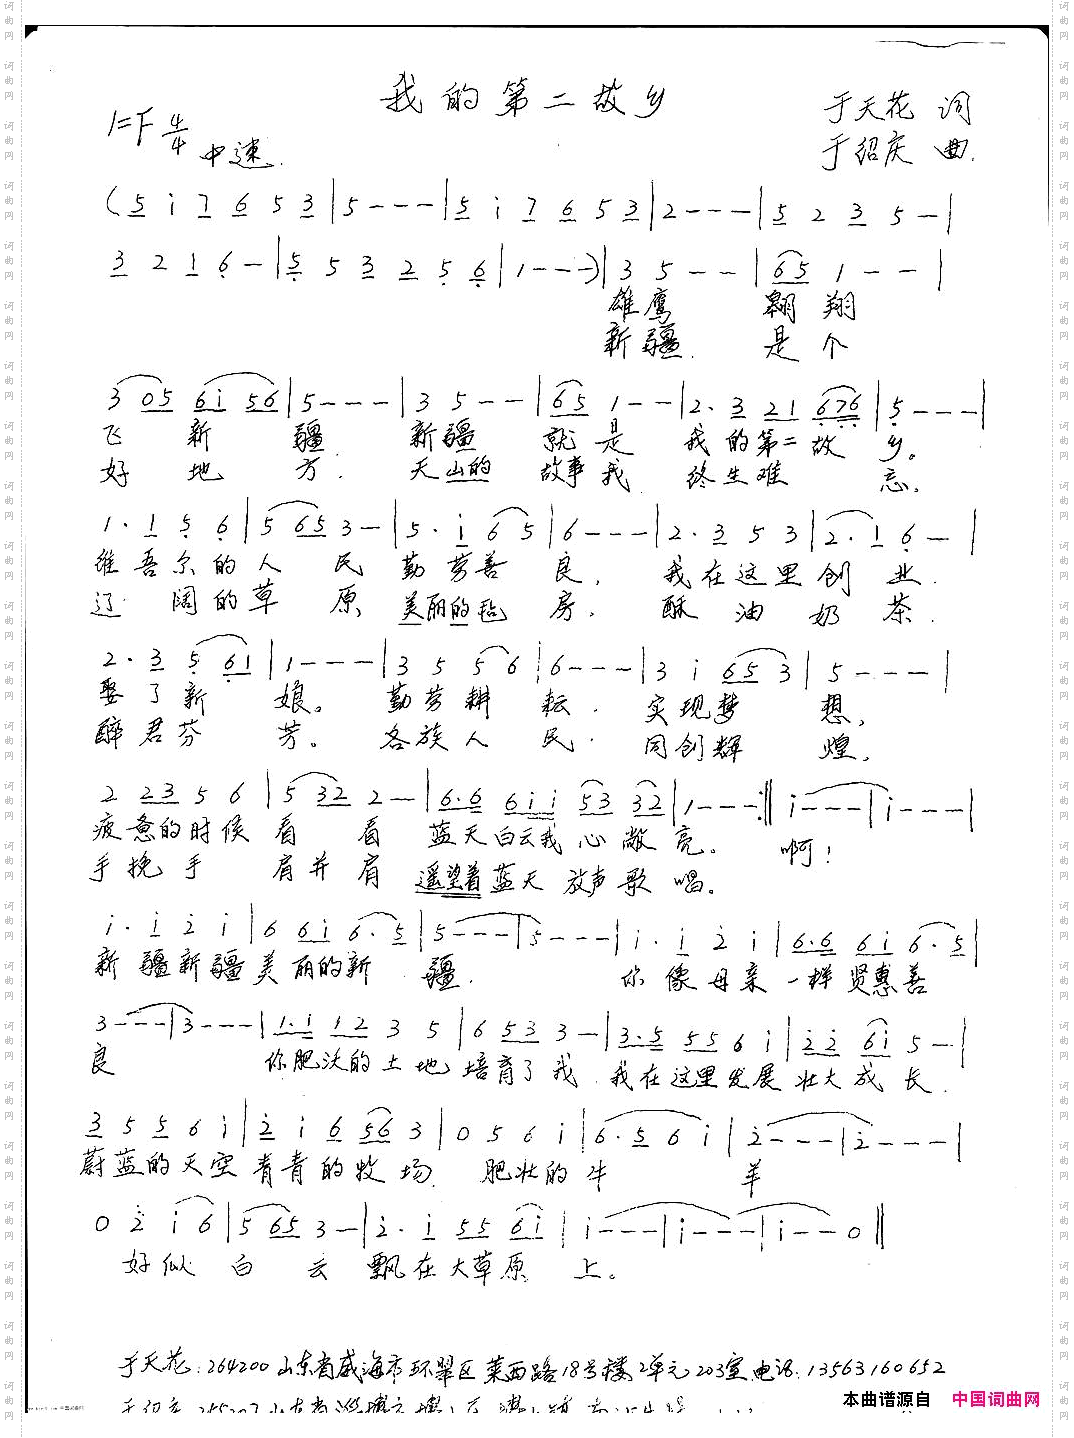 我的第二故乡
1=F 4/4
中速.
于天花 词
于绍庆 曲.
(5 i 7 6 5 3 | 5 - - - | 5 i 7 6 5 3 | 2 - - - | 5 2 3 5 - |
3 2 1 6 - | 5 5 3 2 5 6 | 1 - - -) | 3 5 - - | 65 1 - - |
雄鹰 翱翔
新疆. 是个
3 05 6i 56 | 5 - - - | 3 5 - - | 65 1 - - | 2. 3 21 676 | 5 - - - |
飞 新 疆. 新疆 就是 我的第二故 乡。
好 地 方. 天山的 故事我 终生难 忘,
1. 1 5 6 | 5 65 3 - | 5. i 6 5 | 6 - - - | 2. 3 5 3 | 2. 1 6 - |
维吾尔的人 民 勤劳善 良, 我在这里创 业.
辽 阔的草 原, 美丽的毡 房, 酥 油 奶 茶.
2. 3 5 61 | 1 - - - | 3 5 5 6 | 6 - - - | 3 i 65 3 | 5 - - - |
娶了新 娘。 勤劳耕 耘. 实现梦 想,
醉君芬 芳。 各族人 民. 同创辉 煌,
2 23 5 6 | 5 32 2 - | 6.6 6ii 53 32 | 1 - - - :‖ i - - - | i - - - |
疲惫的时候 看 看 蓝天白云我心敞 亮。 啊!
手挽手 肩并肩 遥望着蓝天 放声歌 唱。
i. i 2 i | 6 6i 6.5 | 5 - - - | 5 - - - | i. i 2 i | 6.6 6i 6.5 |
新疆新疆美丽的新 疆. 你像母亲一样贤惠善
3 - - - | 3 - - - | 1.1 12 3 5 | 6 53 3 - | 3.5 55 6 i | 22 6i 5 - |
良 你肥沃的土地培育了我. 我在这里发展壮大成长.
3 5 5 6 i | 2 i 6 56 3 | 0 5 6 i | 6. 5 6 i | 2 - - - | 2 - - - |
蔚蓝的天空青青的牧场. 肥壮的牛 羊
0 2 i 6 | 5 65 3 - | 2. i 55 6i | i - - - | i - - - | i - - 0 ‖
好似 白 云 飘在大草原 上。
于天花:264200山东省威海市环翠区莱西路18号楼2单元203室.电话.13563160652
本曲谱源自 中国词曲网